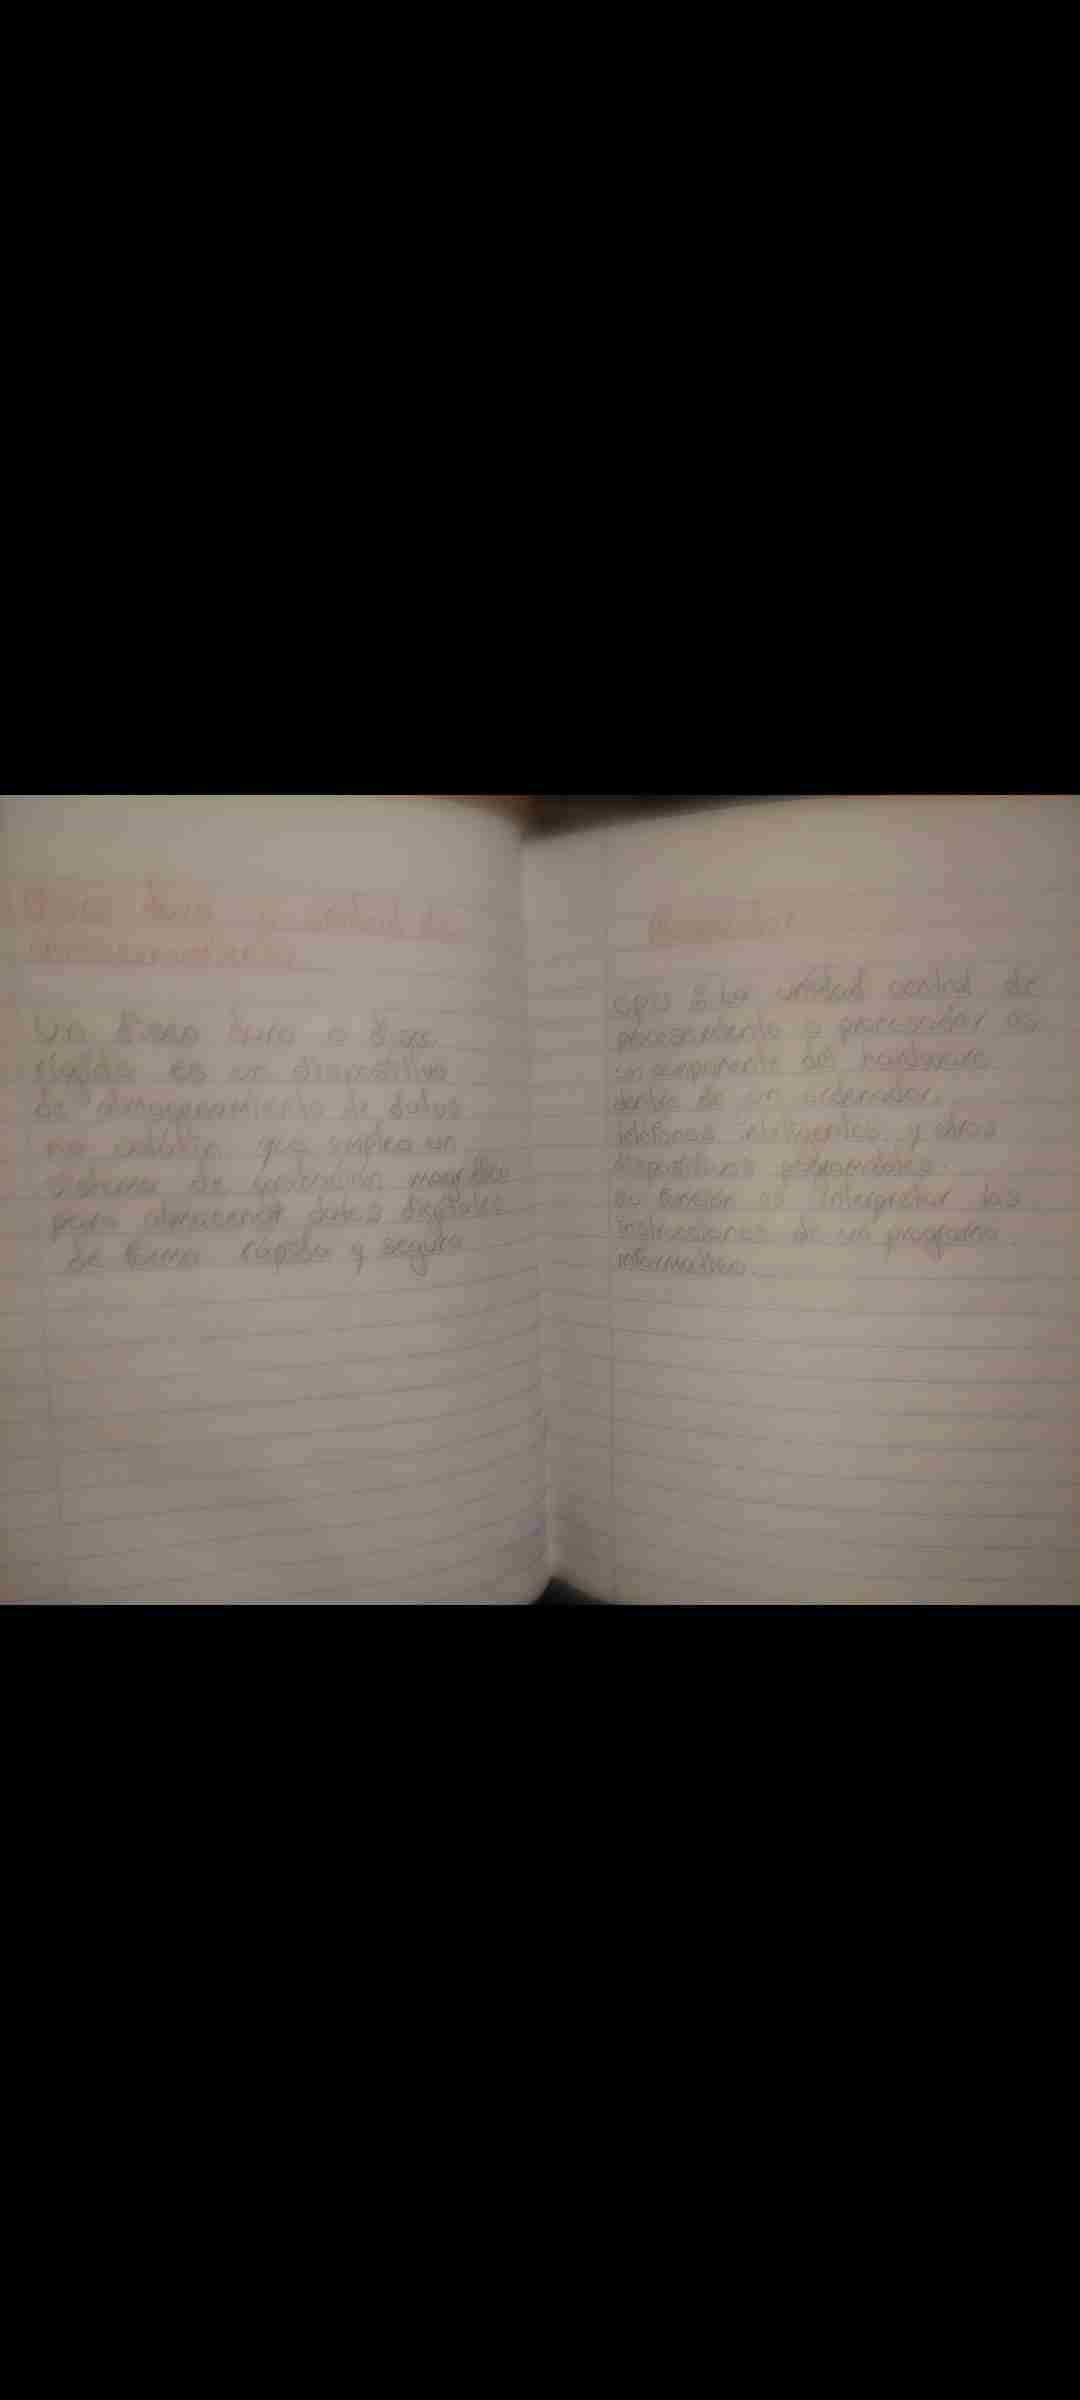 Disco duro y unidad de
almacenamiento
Un disco duro o disc
rigido es un dispositivo
de almacenamiento de datos
no que emplea un
sistema de grabación magnetica
para almacenar datos digitales
de forma rápida y segura
Procesador
cpu : La unidad central de
procesamiento o procesador es
un componente del hardware
dentro de un ordenador,
telefonos inteligentes y otros
dispositivos programables.
su función es interpretar las
instrucciones de un programa
informatico